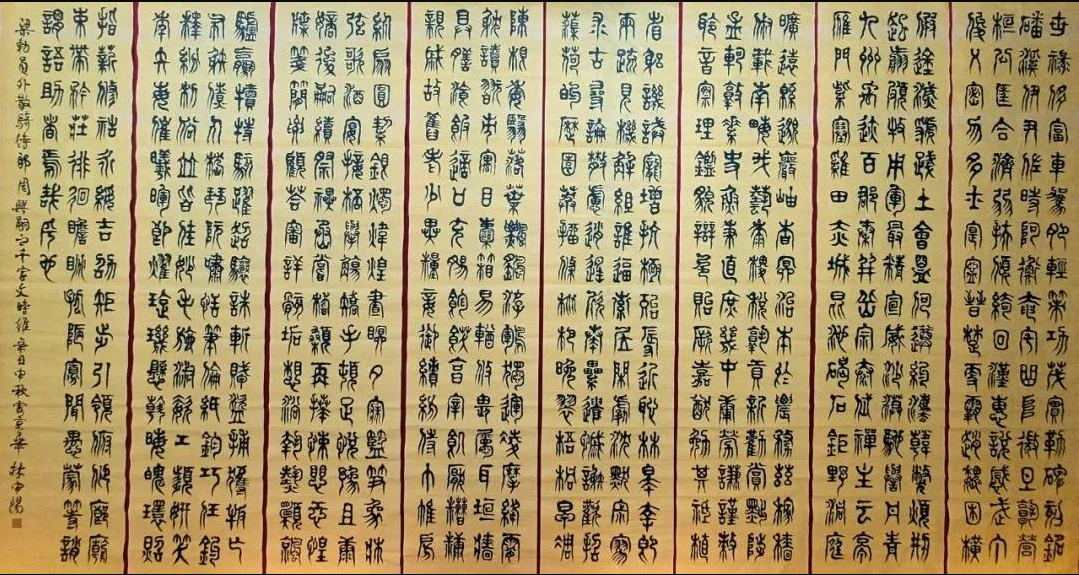 世祿侈富車駕肥輕策功茂實勒碑刻銘
磻溪伊尹佐時阿衡奄宅曲阜微旦孰營
桓公匡合濟弱扶傾綺回漢惠說感武丁
俊乂密勿多士寔寧晉楚更霸趙魏困橫
假途滅虢踐土會盟何遵約法韓弊煩刑
起翦頗牧用軍最精宣威沙漠馳譽丹青
九州禹跡百郡秦并嶽宗泰岱禪主云亭
雁門紫塞雞田赤城昆池碣石鉅野洞庭
曠遠綿邈巖岫杳冥治本於農務茲稼穡
俶載南畝我藝黍稷稅熟貢新勸賞黜陟
孟軻敦素史魚秉直庶幾中庸勞謙謹敕
聆音察理鑑貌辨色貽厥嘉猷勉其祗植
省躬譏誡寵增抗極殆辱近恥林皋幸即
兩疏見機解組誰逼索居閑處沉默寂寥
求古尋論散慮逍遙欣奏累遣慼謝歡招
渠荷的歷園莽抽條枇杷晚翠梧桐早凋
陳根委翳落葉飄颻游鵾獨運凌摩絳霄
耽讀翫市寓目囊箱易輶攸畏屬耳垣牆
具膳飧飯適口充腸飽飫烹宰飢厭糟糠
親戚故舊老少異糧妾御績紡侍巾帷房
紈扇圓潔銀燭煒煌晝眠夕寐藍筍象床
弦歌酒宴接杯舉觴矯手頓足悅豫且康
嫡後嗣續祭祀蒸嘗稽顙再拜悚懼恐惶
牋牒簡要顧答審詳骸垢想浴執熱願涼
驢騾犢特駭躍超驤誅斬賊盜捕獲叛亡
布射僚丸嵇琴阮嘯恬筆倫紙鈞巧任釣
釋紛利俗並皆佳妙毛施淑姿工顰妍笑
年矢每催曦暉朗耀璇璣懸斡晦魄環照
指薪修祜永綏吉劭矩步引領俯仰廊廟
束帶矜莊徘徊瞻眺孤陋寡聞愚蒙等誚
謂語助者焉哉乎也
梁勅員外散騎侍郎周興嗣之千字文時維辛丑中秋書 林